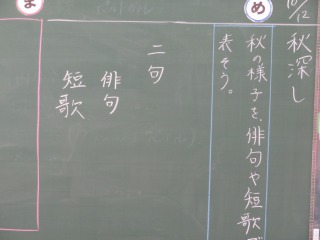 10/12
秋深し
め
秋の様子を、俳句や短歌で
表そう。
二句
俳句
短歌
ま